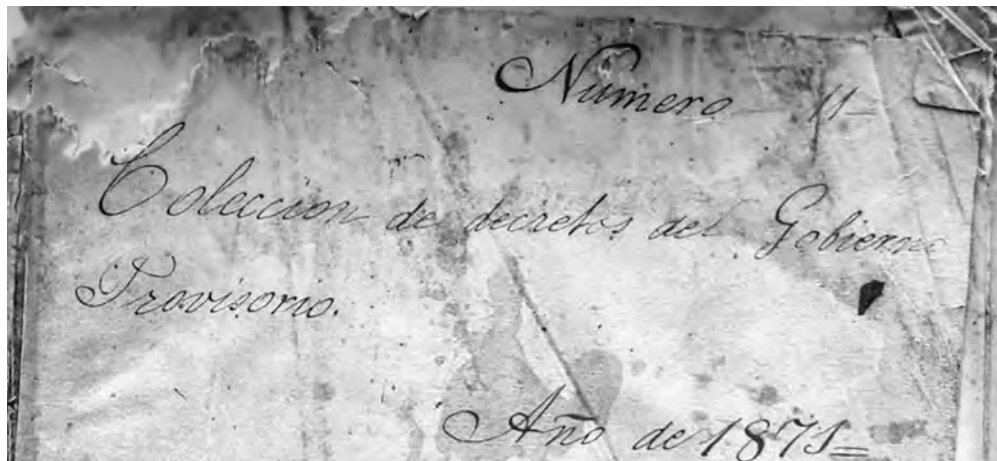 Número 11
Coleccion de decretos del Gobierno
Provisorio.
Año de 1871=